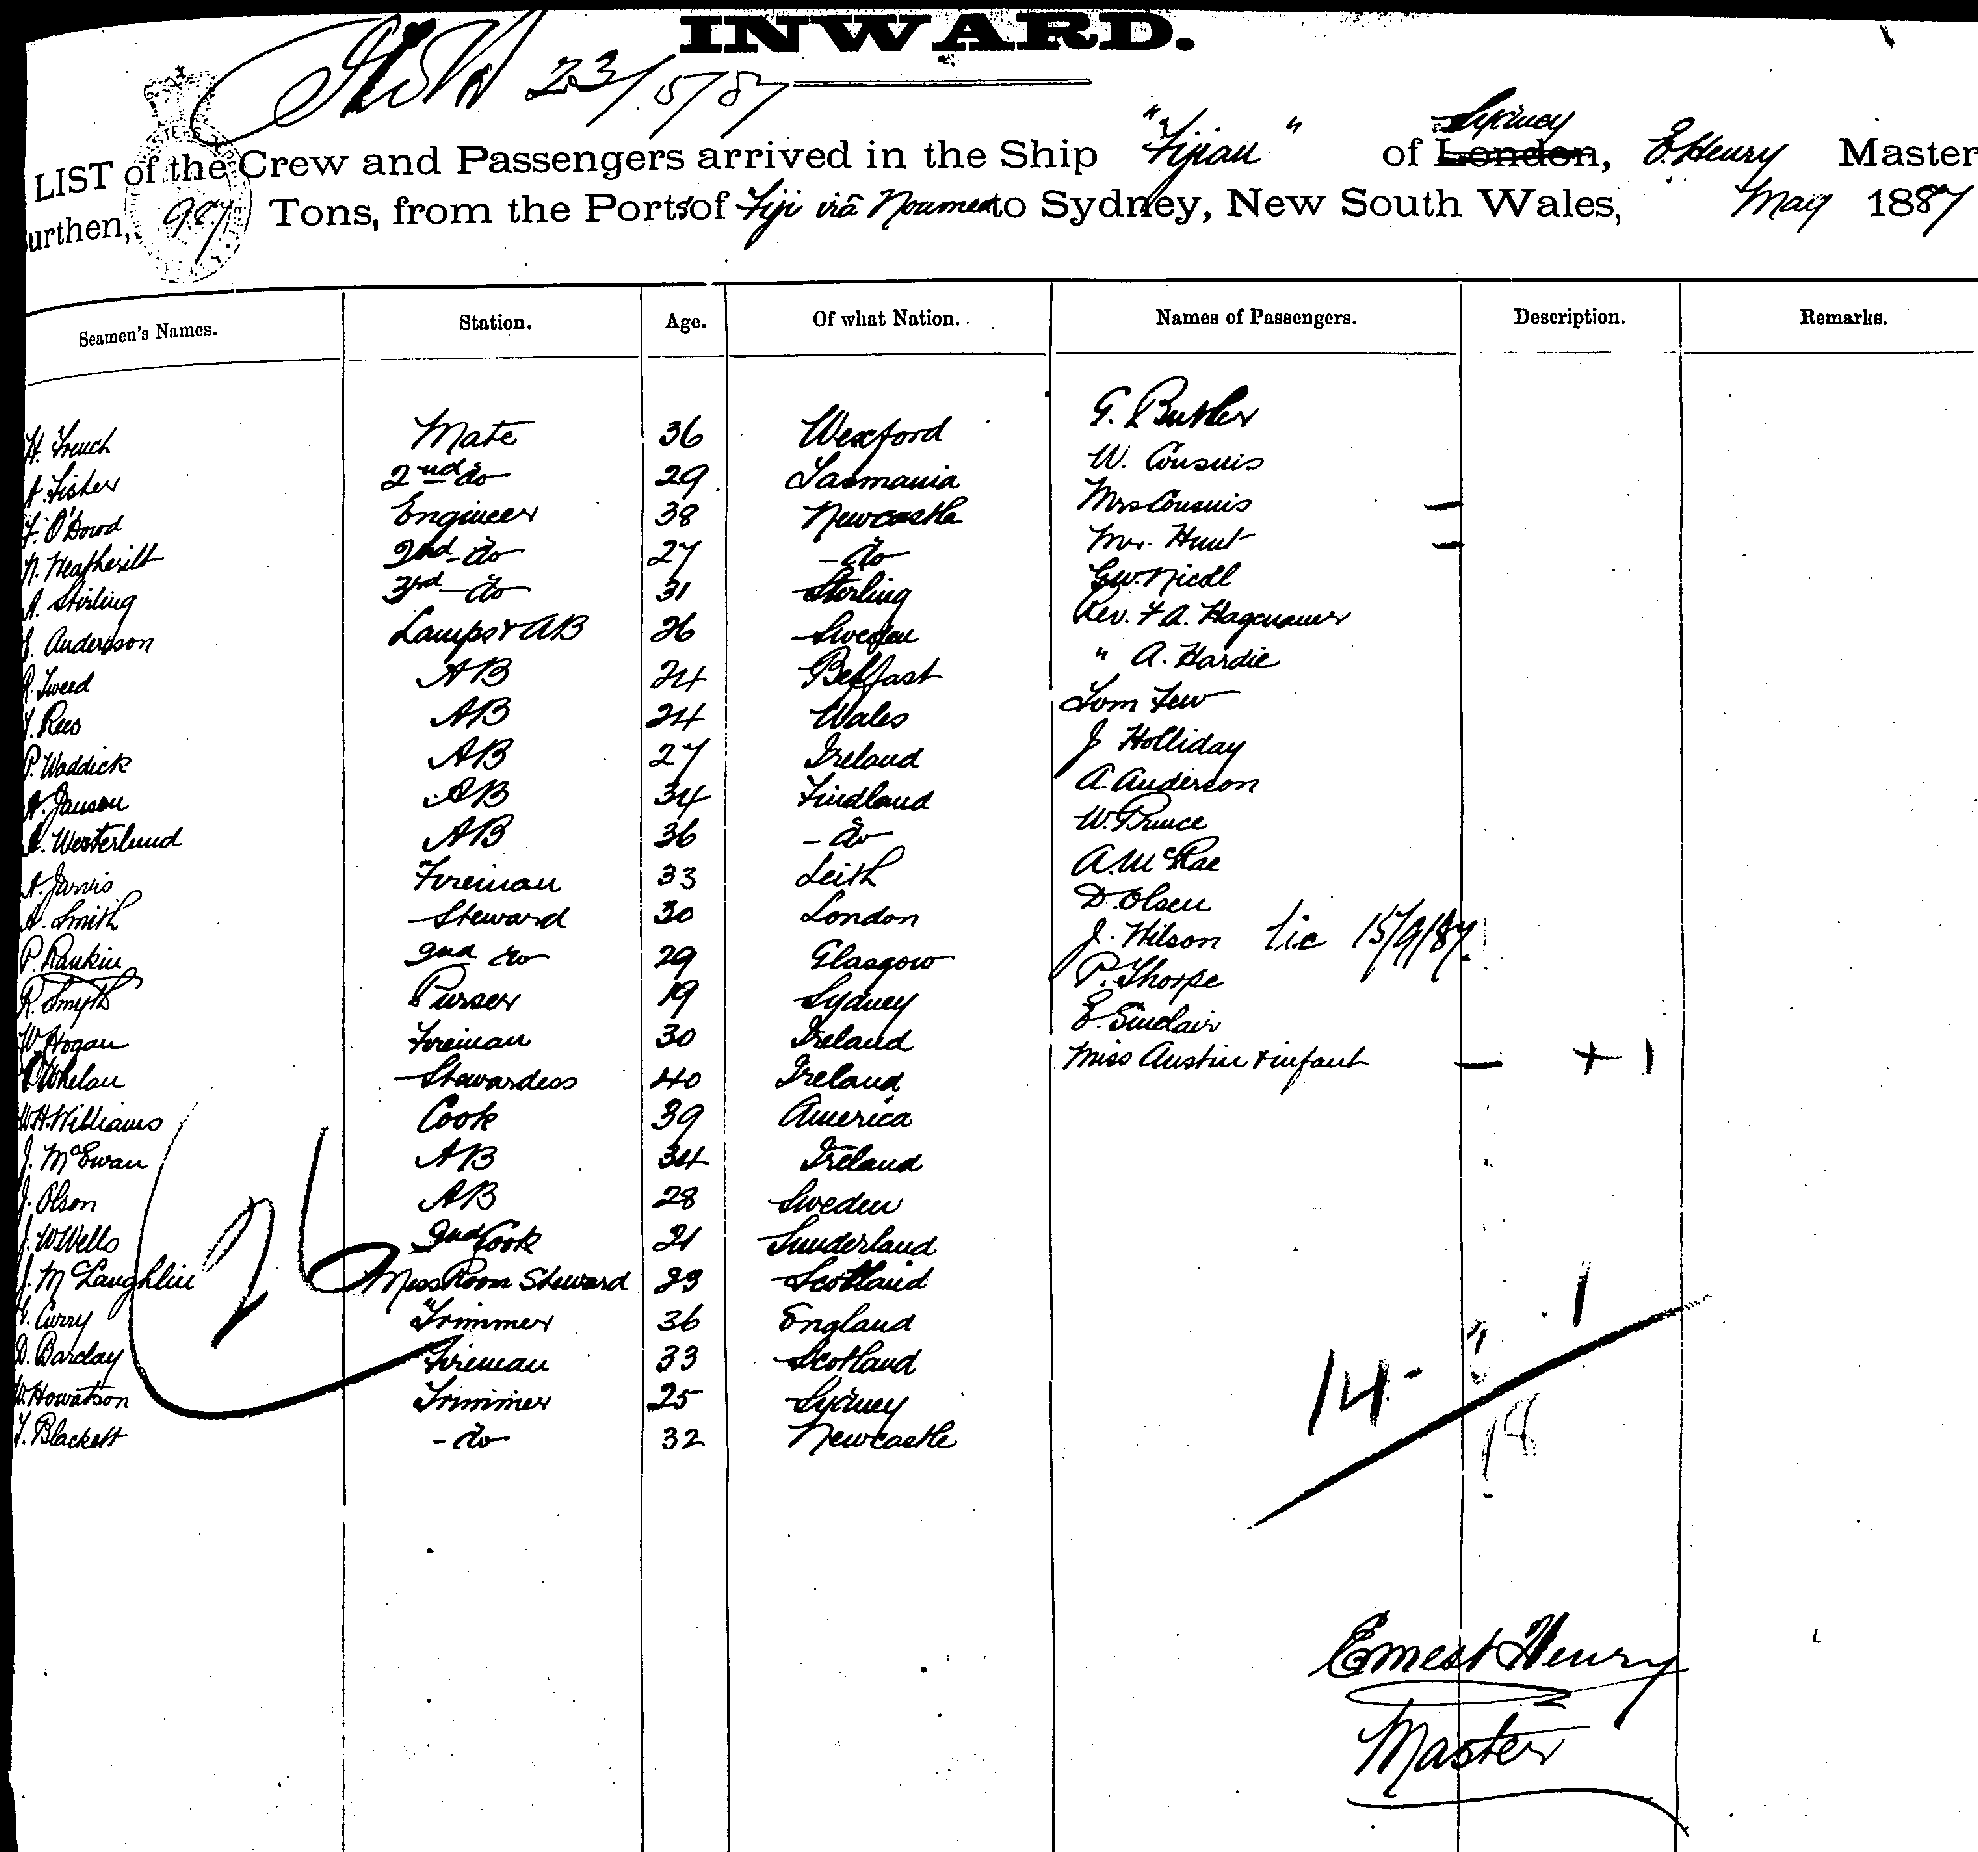 INWARD.
23/5/87
LIST of the Crew and Passengers arrived in the Ship "Fijian" of London, Sydney E. Henry Master
urthen, 987 Tons, from the Ports of Fiji viâ Noumea to Sydney, New South Wales, May 1887
Seamen's Names. Station. Age. Of what Nation. Names of Passengers. Description. Remarks.
H. French Mate 36 Wexford G. Butler
A. Fisher 2nd do 29 Tasmania W. Cousins
F. O'Dowd Engineer 38 Newcastle Mrs Cousins —
N. Neatherilt 2nd do 27 - do Mrs. Hunt —
A. Stirling 3rd do 31 Sterling G.W. Nicoll
Anderson Lamps & AB 26 Sweden Rev. F A. Hagenauer
R. Tweed AB 24 Belfast " A. Hardie
Rees AB 24 Wales Tom Few
P. Waddick AB 27 Ireland J Holliday
A. Janson AB 34 Findland A. Anderson
Westerlund AB 36 - do W. Prince
A. Jarvis Fireman 33 Leith A. McRae
A. Smith Steward 30 London D. Olsen
P. Rankin 2nd do 29 Glasgow J. Wilson tic 15/9/87
R. Smyth Purser 19 Sydney P. Thorpe
W Hogan Fireman 30 Ireland E. Sinclair
Whelan Stewardess 40 Ireland Miss Austin & infant — + 1
W.H. Williams Cook 39 America
J. McEwan AB 34 Ireland
J. Olson AB 28 Sweden
J. W Wells 2nd Cook 21 Sunderland
J. McLaughlin Mess Room Steward 23 Scotland
G. Curry Trimmer 36 England
D. Barclay Fireman 33 Scotland
W. Howatson Trimmer 25 Sydney
T. Blackett - do 32 Newcastle
26
14 - 1
18
Ernest Henry
Master